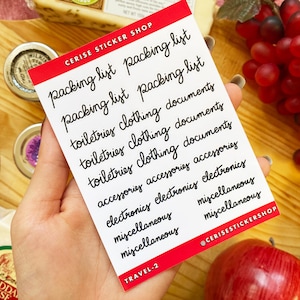 CERISE STICKER SHOP
packing list packing list
packing list packing list
toiletries clothing documents
toiletries clothing documents
toiletries clothing documents
accessories accessories accessories
electronics electronics electronics
miscellaneous miscellaneous
miscellaneous miscellaneous
TRAVEL-2 @CERISESTICKERSHOP